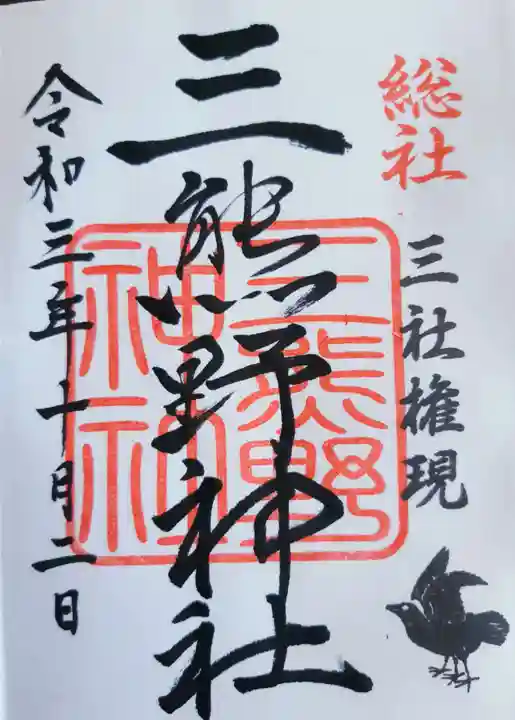 総社
三社権現
三熊野神社
三熊野
神社
令和三年十月二日